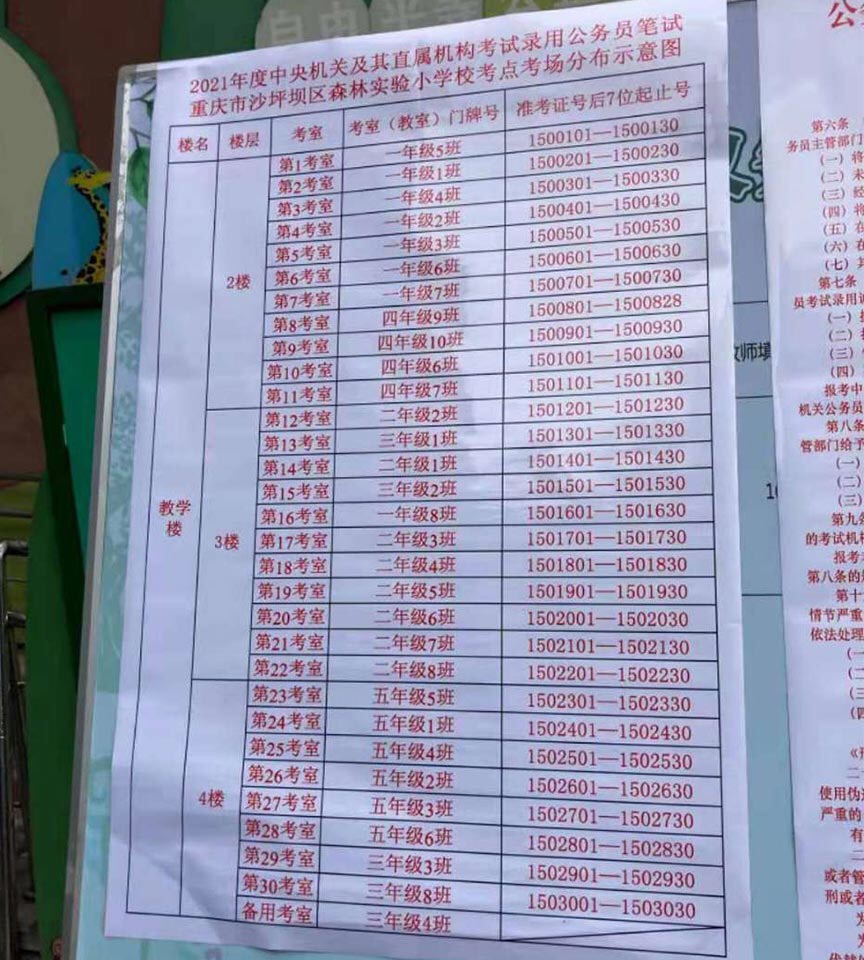 2021年度中央机关及其直属机构考试录用公务员笔试
重庆市沙坪坝区森林实验小学校考点考场分布示意图
楼名 楼层 考室 考室（教室）门牌号 准考证号后7位起止号
教学楼
2楼
第1考室 一年级5班 1500101—1500130
第2考室 一年级1班 1500201—1500230
第3考室 一年级4班 1500301—1500330
第4考室 一年级2班 1500401—1500430
第5考室 一年级3班 1500501—1500530
第6考室 一年级6班 1500601—1500630
第7考室 一年级7班 1500701—1500730
第8考室 四年级9班 1500801—1500828
第9考室 四年级10班 1500901—1500930
第10考室 四年级6班 1501001—1501030
第11考室 四年级7班 1501101—1501130
3楼
第12考室 二年级2班 1501201—1501230
第13考室 三年级1班 1501301—1501330
第14考室 二年级1班 1501401—1501430
第15考室 三年级2班 1501501—1501530
第16考室 一年级8班 1501601—1501630
第17考室 二年级3班 1501701—1501730
第18考室 二年级4班 1501801—1501830
第19考室 二年级5班 1501901—1501930
第20考室 二年级6班 1502001—1502030
第21考室 二年级7班 1502101—1502130
第22考室 二年级8班 1502201—1502230
4楼
第23考室 五年级5班 1502301—1502330
第24考室 五年级1班 1502401—1502430
第25考室 五年级4班 1502501—1502530
第26考室 五年级2班 1502601—1502630
第27考室 五年级3班 1502701—1502730
第28考室 五年级6班 1502801—1502830
第29考室 三年级3班 1502901—1502930
第30考室 三年级8班 1503001—1503030
备用考室 三年级4班
公
第六条
务员主管部门
（一）将
（二）未
（三）经
（四）将
（五）在
（六）
（七）
第七条
员考试录用
（一）
（二）
（三）
（四）
报考中
机关公务员
第八条
管部门给予
（一）
（二）
（三）
第九
的考试机构
报考
第八条的
第十
情节严重
依法处理
（一
（二
（三
（四
使用伪
严重的
有
或者管
刑或者